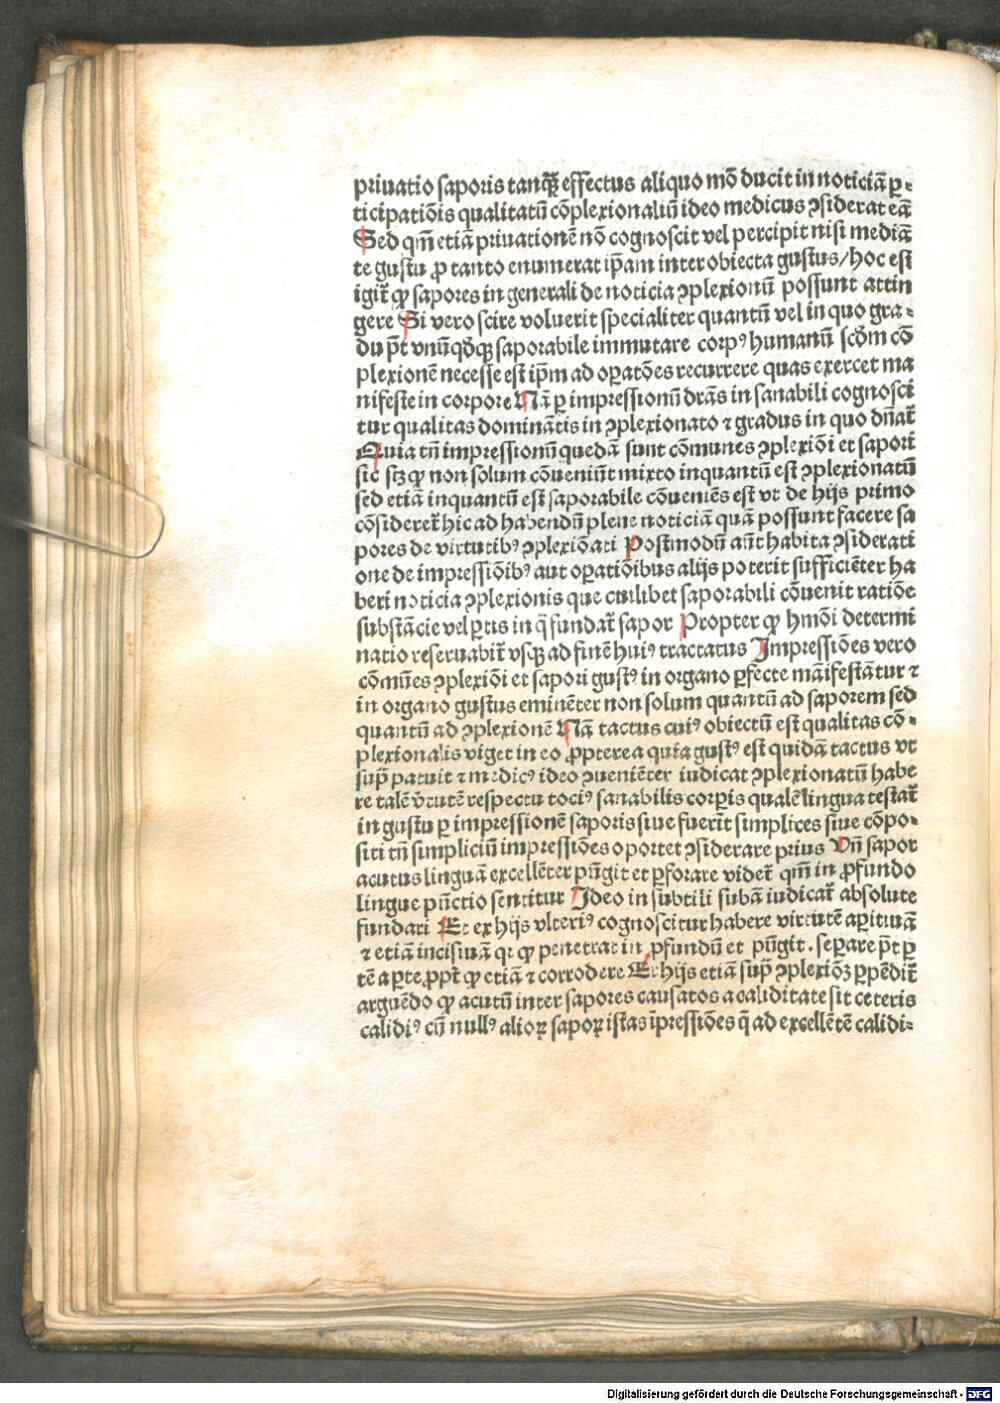 priuatio saporis tanqꝫ effectus aliquo mō ducit in noticiā ꝑ-
ticipatiōis qualitatū cōplexionaliū ideo medicus ꝯsiderat eā
Sed qm̄ etiā priuationē nō cognoscit vel percipit nisi mediā
te gustu ꝓ tanto enumerat ip̄am inter obiecta gustus/hoc est
igit̄ ꝙ sapores in generali de noticia ꝯplexionū possunt attin
gere Si vero scire voluerit specialiter quantū vel in quo gra-
du pōt vnūqḋqꝫ saporabile immutare corpꝰ humanū scḋm cō
plexionē necesse est ip̄m ad oꝑatōes recurrere quas exercet ma
nifeste in corpore Nā ꝑ impressionū dr̄as in sanabili cognosci
tur qualitas dominātis in ꝯplexionato ⁊ gradus in quo dn̄at̄
Quia tn̄ impressionū quedā sunt cōmunes ꝯplexiōi et sapori
sic sꝫ ꝙ non solum cōueniūt mixto inquantū est ꝯplexionatū
sed etiā inquantū est saporabile cōueniēs est vt de hijs primo
cōsideret̄ hic ad habendū plene noticiā quā possunt facere sa
pores de virtutibꝰ ꝯplexiōati Postmodū aūt habita ꝯsiderati
one de impressiōibꝰ aut oꝑatiōibus alijs poterit sufficiēter ha
beri noticia ꝯplexionis que cuilibet saporabili cōuenit ratiōe
substācie vel ꝑtis in q̄ fundat̄ sapor Propter ꝙ hmōi determi
natio reseruabit̄ vsqꝫ ad finē huiꝰ tractatus Impressiōes vero
cōmūes ꝯplexiōi et sapori gustꝰ in organo ꝑfecte māifestātur ⁊
in organo gustus eminēter non solum quantū ad saporem sed
quantū ad ꝯplexionē Nā tactus cuiꝰ obiectū est qualitas cō-
plexionalis viget in eo ꝓpterea quia gustꝰ est quidā tactus vt
sup̄ patuit ⁊ medicꝰ ideo ꝯueniēter iudicat ꝯplexionatū habe
re talē v̄tutē respectu tociꝰ sanabilis corꝑis qualē lingua testat̄
in gustu ꝑ impressionē saporis siue fuerīt simplices siue cōpo-
siti tn̄ simpliciū impressiōes oportet ꝯsiderare prius Vn̄ sapor
acutus linguā excellēter pūgit et ꝑforare videt̄ qm̄ in ꝓfundo
lingue pūctio sentitur Ideo in subtili subā iudicat̄ absolute
fundari Et ex hijs vlteriꝰ cognoscitur habere virtutē aꝑitiuā
⁊ etiā incisiuā qꝛ ꝙ penetrat in ꝓfundū et pūgit. seꝑare pōt ꝑ
tē a ꝑte ꝓpt̄ ꝙ etiā ⁊ corrodere Ex hijs etiā sup̄ ꝯplexiōꝫ ꝑpēdit̄
arguēdo ꝙ acutū inter sapores causatos a caliditate sit ceteris
calidiꝰ cū nullꝰ alioꝝ sapoꝝ istas īpressiōes q̄ ad excellētē calidi-
Digitalisierung gefördert durch die Deutsche Forschungsgemeinschaft - DFG